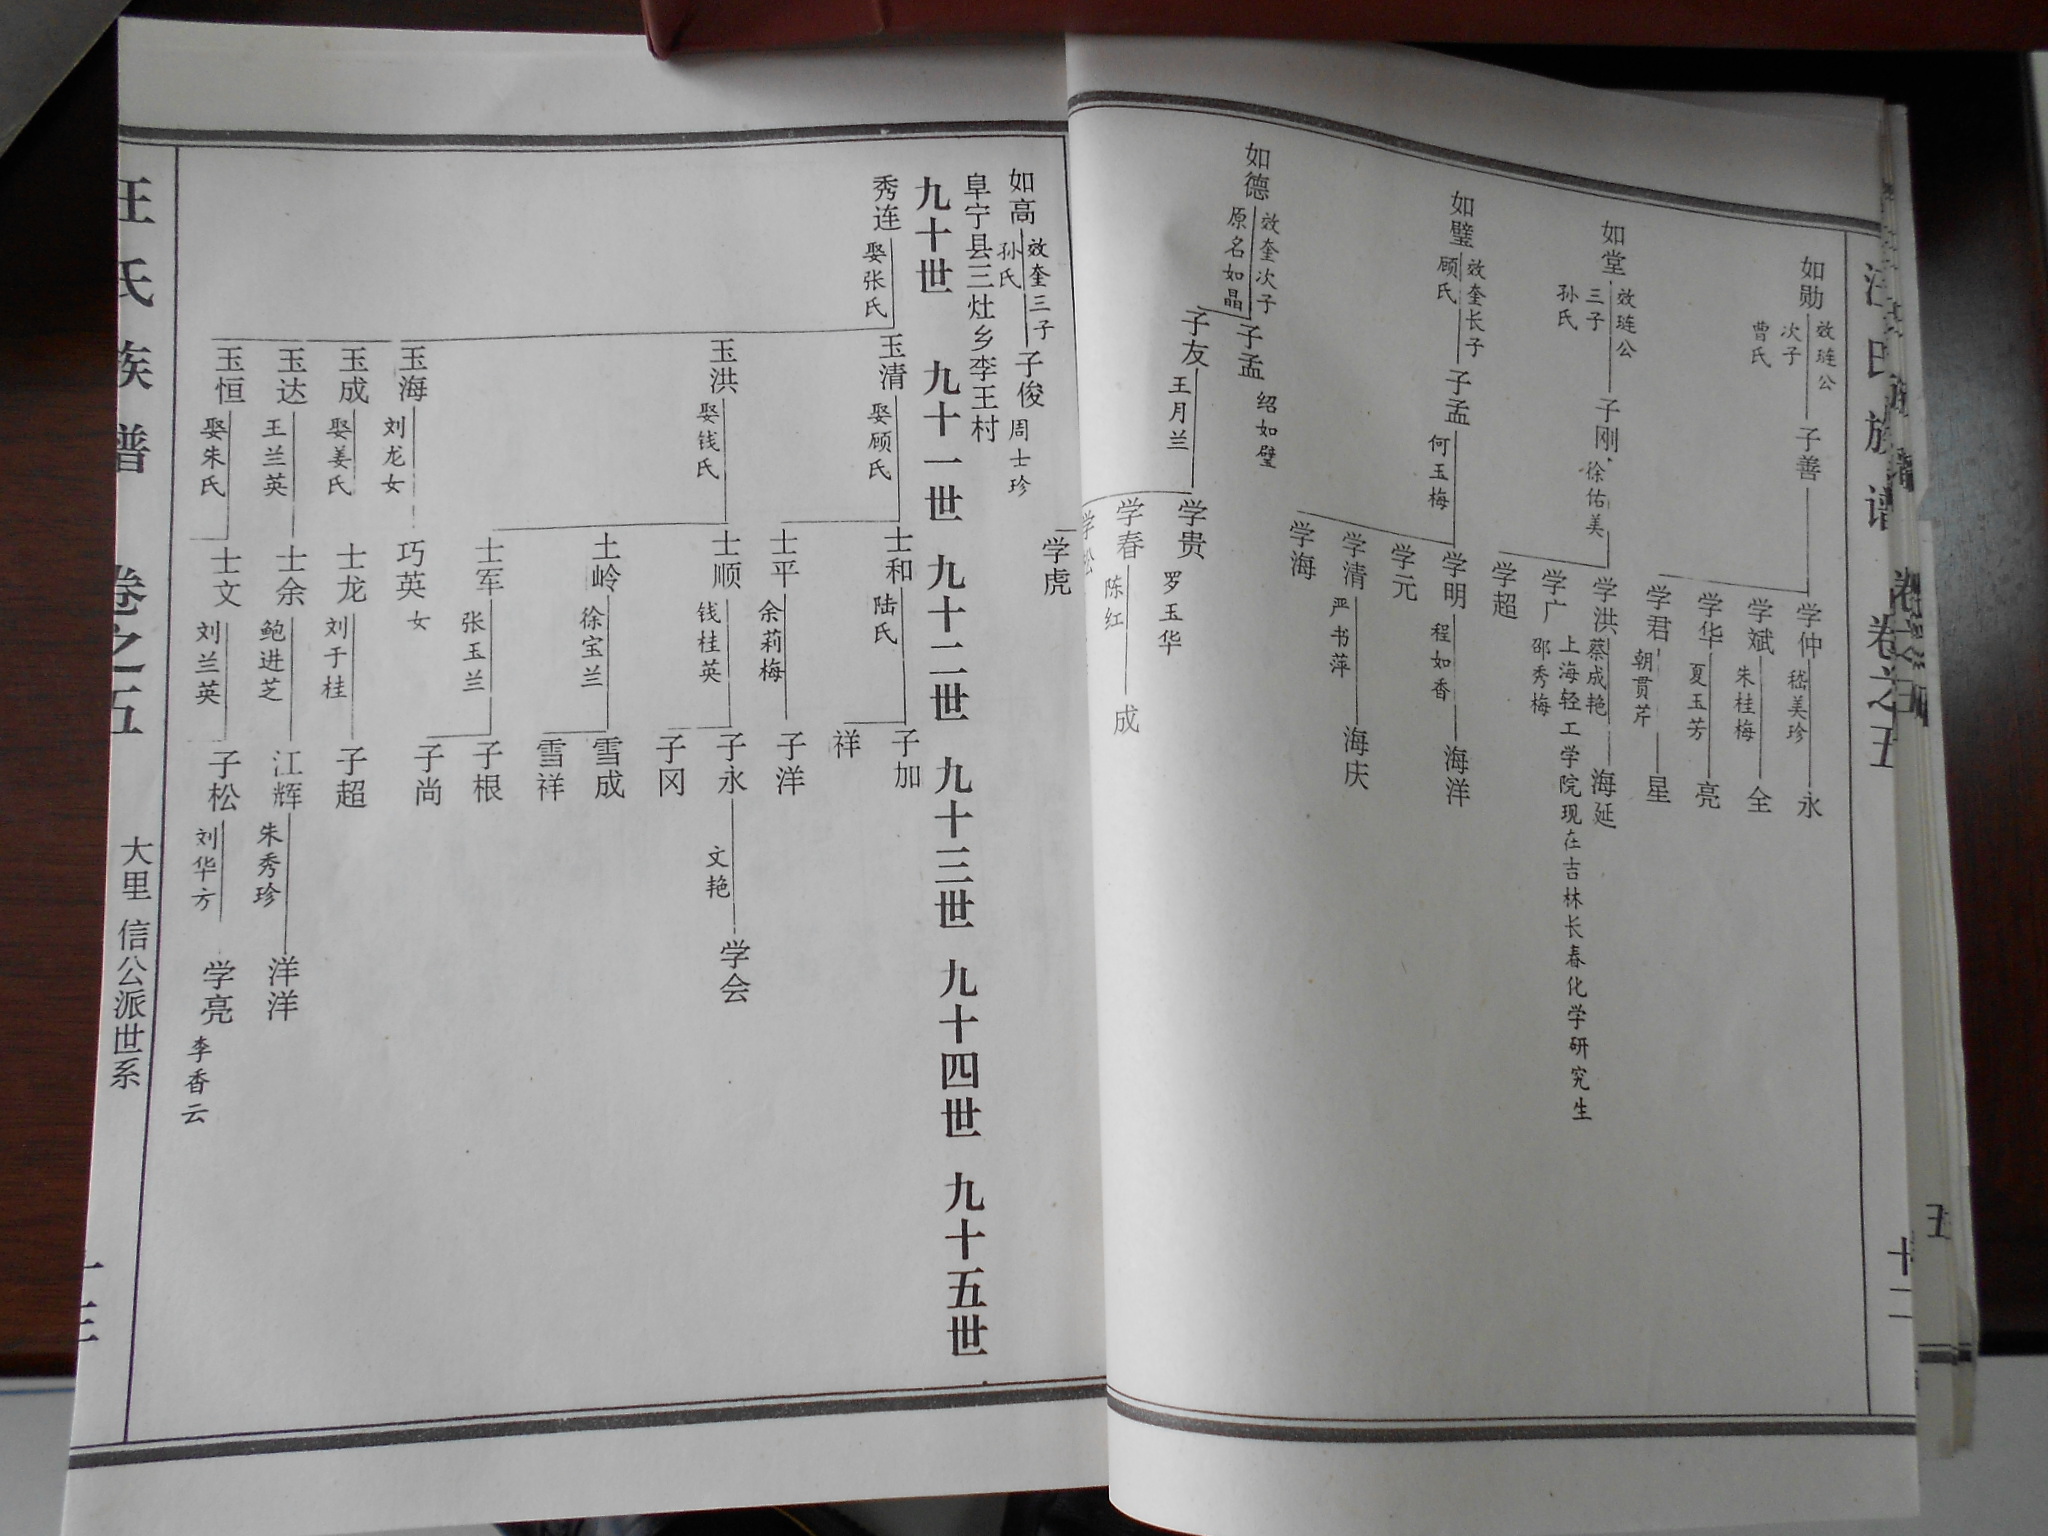 汪氏族谱 卷之五
十二
如勋
效琏公
次子
曹氏
子善
学仲
嵇美珍
永
学斌
朱桂梅
全
学华
夏玉芳
亮
学君
朝贯芹
星
如堂
效琏公
三子
孙氏
子刚
徐佑美
学洪
蔡成艳
海延
上海轻工学院现在吉林长春化学研究生
学广
邵秀梅
学超
如璧
效奎长子
顾氏
子孟
何玉梅
学明
程如香
海洋
学元
学清
严书萍
海庆
学海
如德
效奎次子
原名如晶
子孟
绍如璧
子友
王月兰
学贵
罗玉华
学春
陈红
成
学松
学虎
如高
效奎三子
孙氏
子俊
周士珍
阜宁县三灶乡李王村
九十世 九十一世 九十二世 九十三世 九十四世 九十五世
秀连
娶张氏
玉清
娶顾氏
士和
陆氏
子加
祥
士平
余莉梅
子洋
玉洪
娶钱氏
士顺
钱桂英
子永
文艳
学会
子冈
士岭
徐宝兰
雪成
雪祥
士军
张玉兰
子根
子尚
玉海
刘龙女
巧英
女
玉成
娶姜氏
士龙
刘于桂
子超
玉达
王兰英
士余
鲍进芝
江辉
朱秀珍
洋洋
玉恒
娶朱氏
士文
刘兰英
子松
刘华方
学亮
李香云
汪氏族谱 卷之五
大里 信公派世系
十三